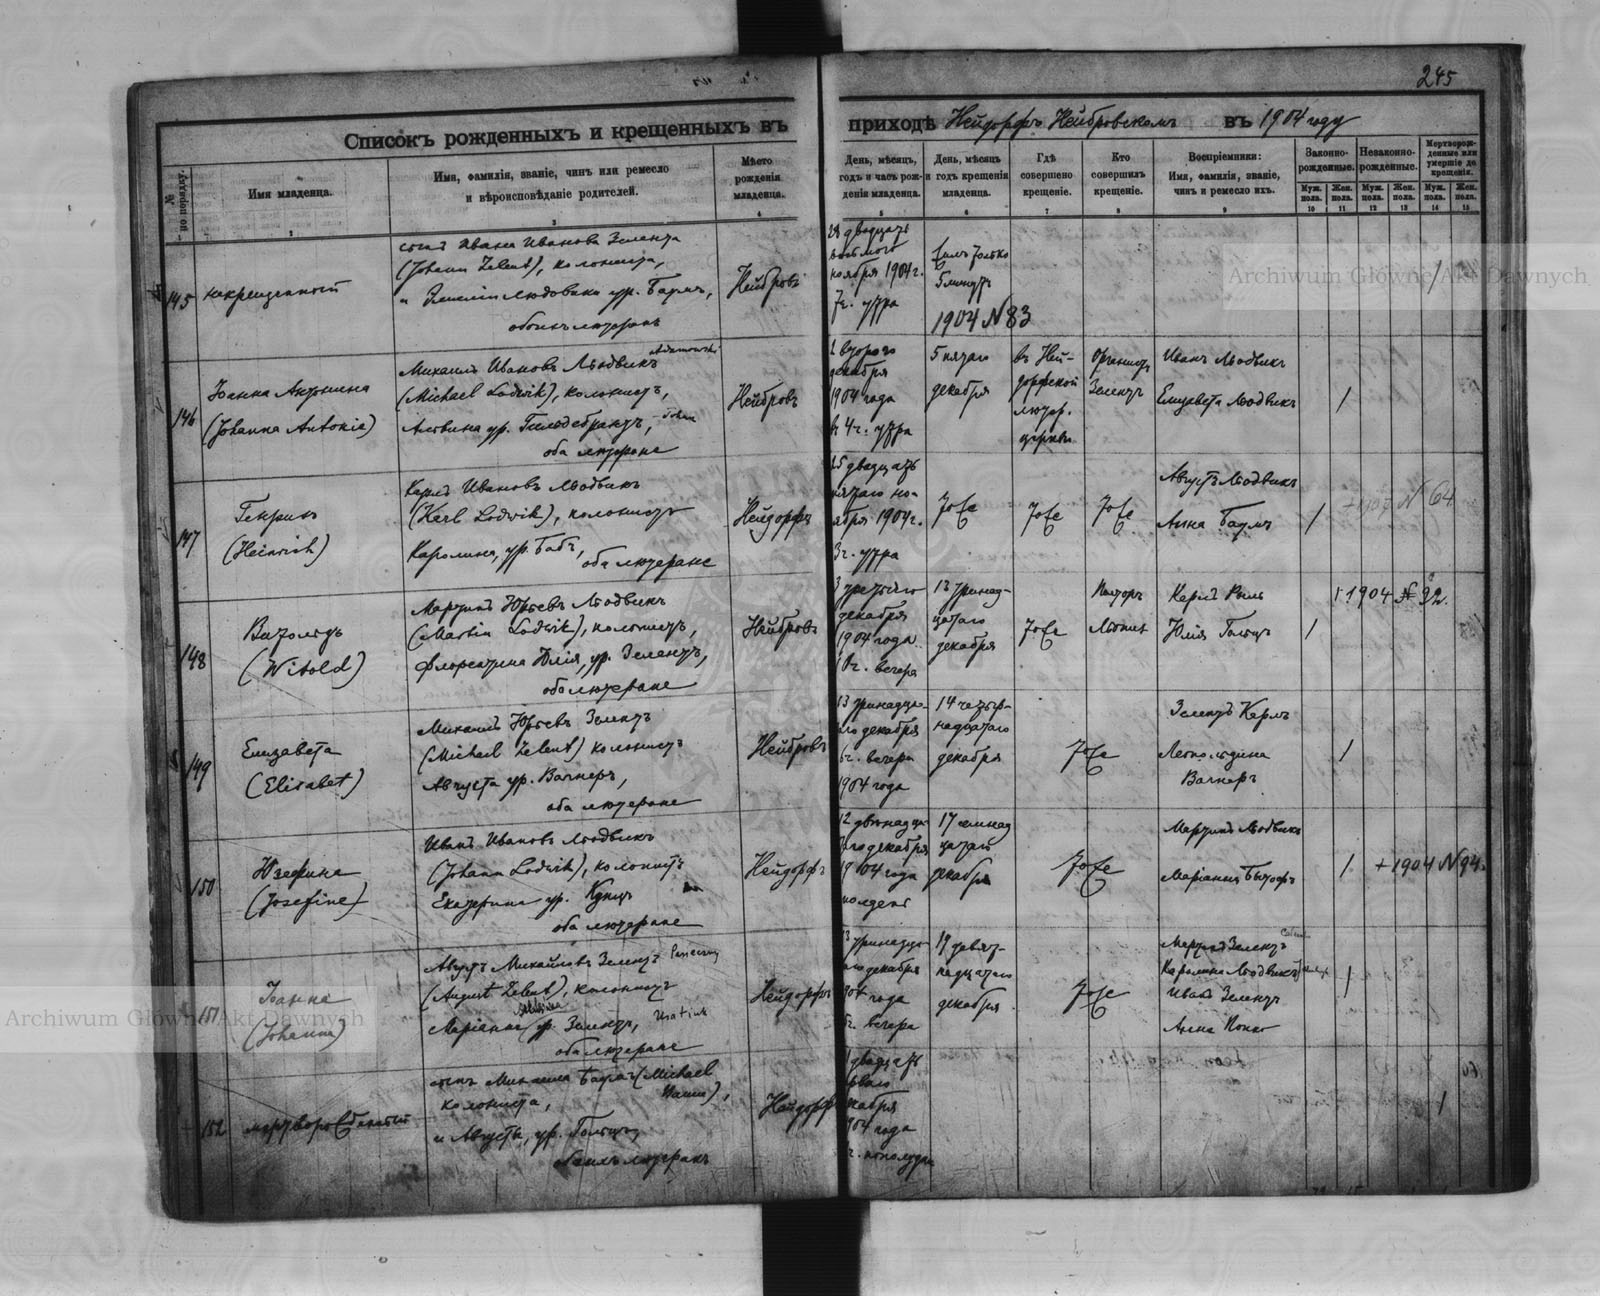 245
Списокъ рожденныхъ и крещенныхъ въ приходѣ Нейдорфъ Нейбровскомъ въ 1904 году
№ по порядку.
Имя младенца.
Имя, фамилія, званіе, чинъ или ремесло
и вѣроисповѣданіе родителей.
Мѣсто
рожденія
младенца.
День, мѣсяцъ,
годъ и часъ рож-
денія младенца.
День, мѣсяцъ
и годъ крещенія
младенца.
Гдѣ
совершено
крещеніе.
Кто
совершилъ
крещеніе.
Воспріемники:
Имя, фамилія, званіе,
чинъ и ремесло ихъ.
Законно-
рожденные.
Незаконно-
рожденные.
Мертворож-
денные или
умершіе до
крещенія.
Муж. пола.
Жен. пола.
Муж. пола.
Жен. пола.
Муж. пола.
Жен. пола.
3 4 5 6 7 8 9 10 11 12 13 14 15
145
некрещенный
сынъ Ивана Иванова Зелента
(Johann Zelent), колониста,
и Эмиліи Людовики ур. Баумъ,
обоихъ лютеранъ
Нейбровъ
28 двадцать
восьмого
ноября 1904 г.
7 ч. утра
Жилъ только
5 минутъ
1904 N 83
/
146
Іоанна Антонина
(Johanna Antonie)
Михаилъ Ивановъ Людвикъ
(Michael Lodwik), колонистъ,
Альвина ур. Гильдебрандтъ,
оба лютеране
Нейбровъ
2 второго
декабря
1904 года
в 4 ч. утра
5 пятаго
декабря
въ Ней-
дорфской
лютер.
церкви
Органистъ
Зелентъ
Иванъ Людвикъ
Елизавета Людвикъ
1
147
Генрихъ
(Heinrich)
Карлъ Ивановъ Людвикъ
(Karl Lodwik), колонистъ
Каролина, ур. Бабъ,
оба лютеране
Нейдорфъ
25 двадцать
пятаго но-
ября 1904 г.
3 ч. утра
тоже
тоже
тоже
Августъ Людвикъ
Анна Баумъ
1
N 64
148
Витольдъ
(Witold)
Мартинъ Юрьевъ Людвикъ
(Martin Lodwik), колонистъ,
Флорентина Юлія, ур. Зелентъ,
оба лютеране
Нейбровъ
3 третьяго
декабря
1904 года
10 ч. вечера
13 тринад-
цатаго
декабря
тоже
Пасторъ
Карлъ Риль
Юлія Гольцъ
1
+ 1904 № 92.
149
Елизавета
(Elisabet)
Михаилъ Юрьевъ Зелентъ
(Michael Zelent) колонистъ
Августа ур. Вагнеръ,
оба лютеране
Нейбровъ
13 тринадца-
таго декабря
6 ч. вечера
1904 года
14 четыр-
надцатаго
декабря
тоже
Зелентъ Карлъ
Леопольдина
Вагнеръ
1
150
Юзефина
(Josefine)
Иванъ Ивановъ Людвикъ
(Johann Lodwik), колонистъ
Екатерина ур. Кунцъ
оба лютеране
Нейдорфъ
12 двѣнадца-
таго декабря
1904 года
полдень
17 семнад
цатаго
декабря
тоже
Мартинъ Людвикъ
Маріанна Бытофъ
1
+ 1904 N 94.
151
Іоанна
(Johanna)
Августъ Михайловъ Зелентъ
(August Zelent), колонистъ
Маріанна ур. Зелентъ,
оба лютеране
Нейдорфъ
13 тринадца-
таго декабря
904 года
6 ч. вечера
19 девят-
надцатаго
декабря
тоже
Мартинъ Зелентъ
Каролина Людвикъ
Иванъ Зелентъ
Анна Попко
1
152
мертворожденный
сынъ Михаила Баумъ (Michael
колониста,
и Августы, ур. Гольцъ,
обоихъ лютеранъ
Нейдорфъ
двадцать
перваго
декабря
904 года
ч. пополудни
1
Archiwum Główne Akt Dawnych
Archiwum Główne Akt Dawnych